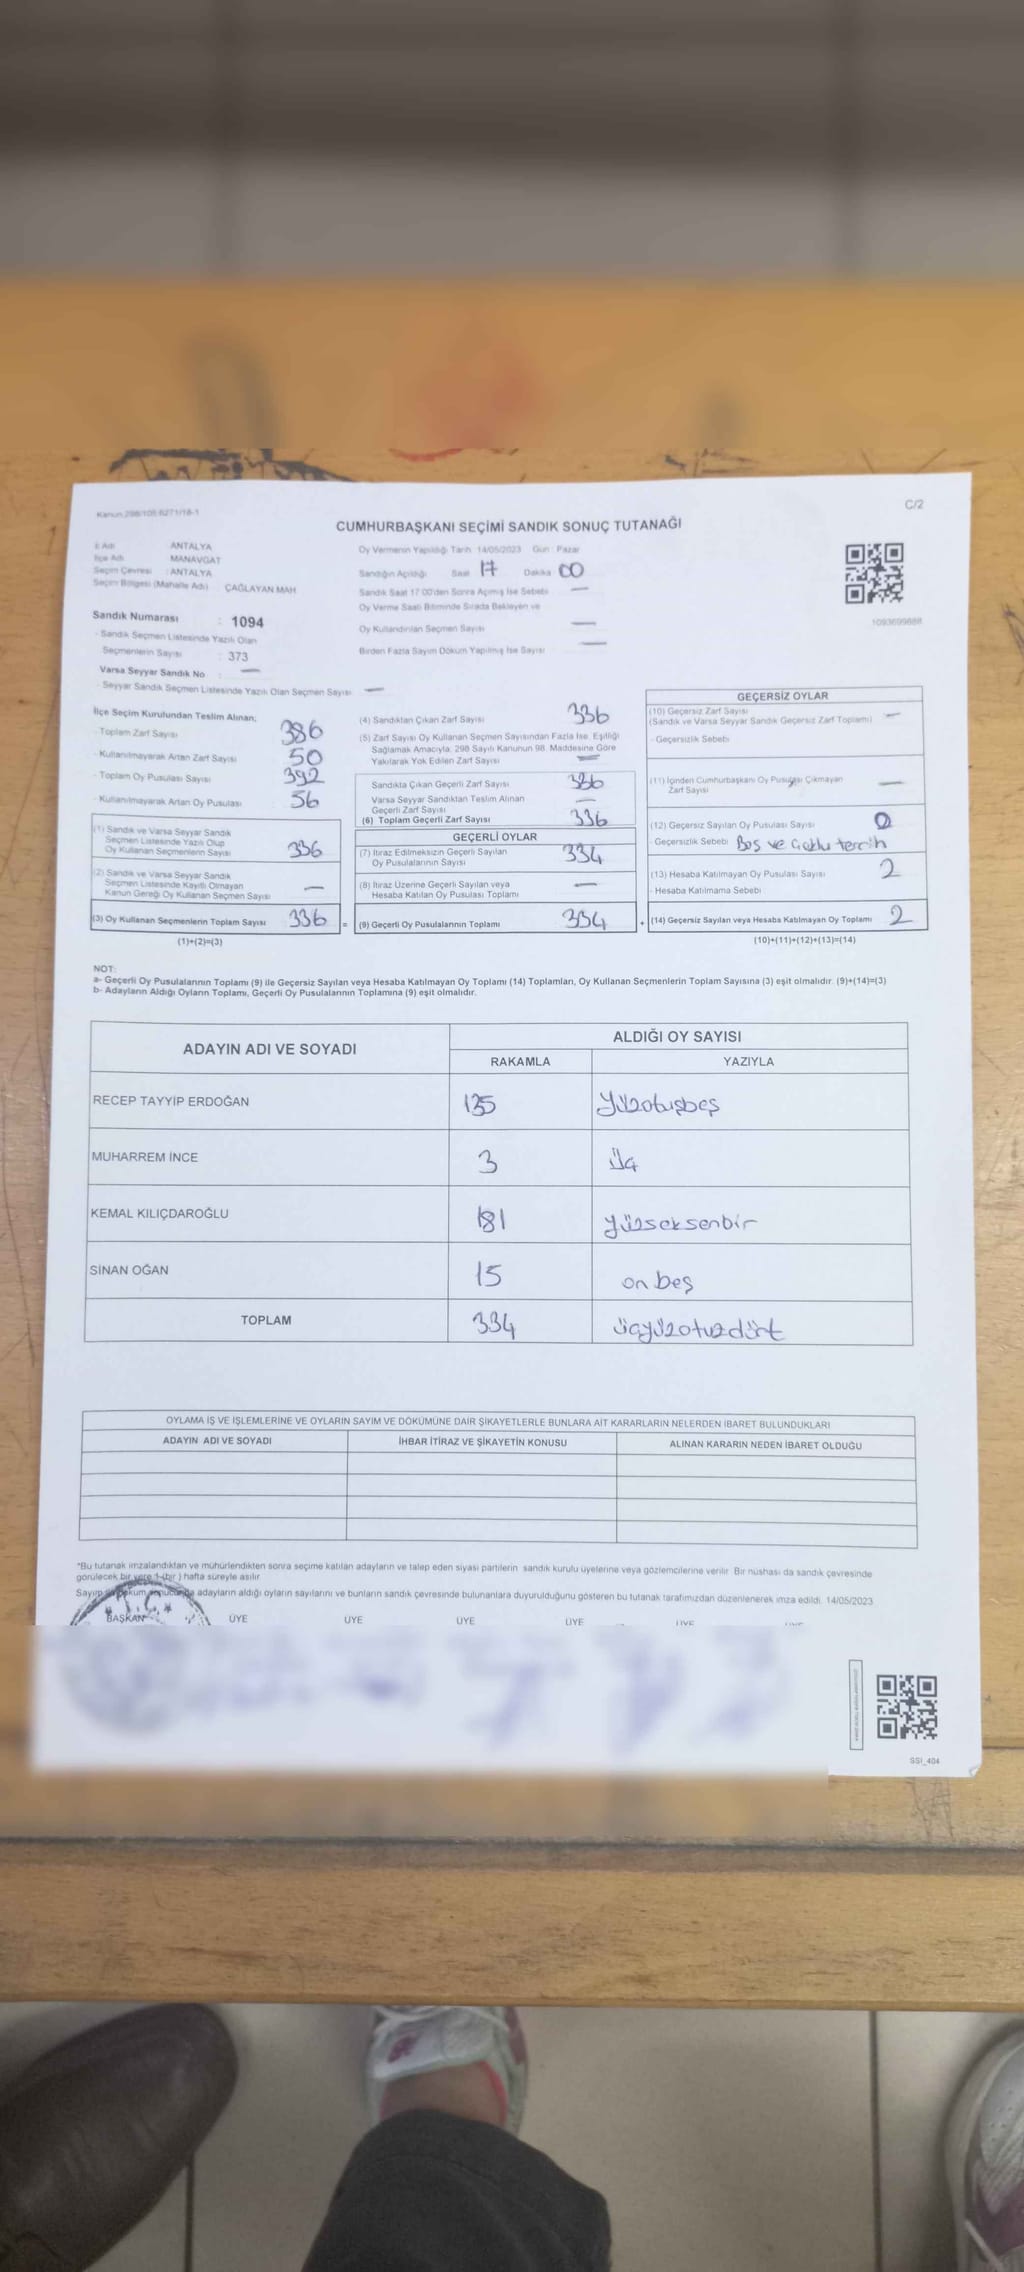 Kanun 298/105 6271/18-1
C/2
CUMHURBAŞKANI SEÇİMİ SANDIK SONUÇ TUTANAĞI
İl Adı ANTALYA
İlçe Adı MANAVGAT
Seçim Çevresi : ANTALYA
Seçim Bölgesi (Mahalle Adı) : ÇAĞLAYAN MAH
Sandık Numarası : 1094
- Sandık Seçmen Listesinde Yazılı Olan
Seçmenlerin Sayısı : 373
Varsa Seyyar Sandık No : —
- Seyyar Sandık Seçmen Listesinde Yazılı Olan Seçmen Sayısı —
Oy Vermenin Yapıldığı Tarih 14/05/2023 Gün : Pazar
Sandığın Açıldığı Saat 17 Dakika 00
Sandık Saat 17 00'den Sonra Açılmış İse Sebebi —
Oy Verme Saati Bitiminde Sırada Bekleyen ve
Oy Kullandırılan Seçmen Sayısı —
Birden Fazla Sayım Döküm Yapılmış İse Sayısı —
1093699888
İlçe Seçim Kurulundan Teslim Alınan;
- Toplam Zarf Sayısı 386
- Kullanılmayarak Artan Zarf Sayısı 50
- Toplam Oy Pusulası Sayısı 392
- Kullanılmayarak Artan Oy Pusulası 56
(1) Sandık ve Varsa Seyyar Sandık
Seçmen Listesinde Yazılı Olup
Oy Kullanan Seçmenlerin Sayısı 336
(2) Sandık ve Varsa Seyyar Sandık
Seçmen Listesinde Kayıtlı Olmayan
Kanun Gereği Oy Kullanan Seçmen Sayısı —
(3) Oy Kullanan Seçmenlerin Toplam Sayısı 336 =
(1)+(2)=(3)
(4) Sandıktan Çıkan Zarf Sayısı 336
(5) Zarf Sayısı Oy Kullanan Seçmen Sayısından Fazla İse, Eşitliği
Sağlamak Amacıyla, 298 Sayılı Kanunun 98. Maddesine Göre
Yakılarak Yok Edilen Zarf Sayısı —
Sandıkta Çıkan Geçerli Zarf Sayısı 336
Varsa Seyyar Sandıktan Teslim Alınan
Geçerli Zarf Sayısı —
(6) Toplam Geçerli Zarf Sayısı 336
GEÇERLİ OYLAR
(7) İtiraz Edilmeksizin Geçerli Sayılan
Oy Pusulalarının Sayısı 334
(8) İtiraz Üzerine Geçerli Sayılan veya
Hesaba Katılan Oy Pusulası Toplamı —
(9) Geçerli Oy Pusulalarının Toplamı 334 +
GEÇERSİZ OYLAR
(10) Geçersiz Zarf Sayısı
(Sandık ve Varsa Seyyar Sandık Geçersiz Zarf Toplamı) —
- Geçersizlik Sebebi
(11) İçinden Cumhurbaşkanı Oy Pusulası Çıkmayan
Zarf Sayısı —
(12) Geçersiz Sayılan Oy Pusulası Sayısı
- Geçersizlik Sebebi Boş ve Çoklu tercih
(13) Hesaba Katılmayan Oy Pusulası Sayısı 2
- Hesaba Katılmama Sebebi
(14) Geçersiz Sayılan veya Hesaba Katılmayan Oy Toplamı 2
(10)+(11)+(12)+(13)=(14)
NOT:
a- Geçerli Oy Pusulalarının Toplamı (9) ile Geçersiz Sayılan veya Hesaba Katılmayan Oy Toplamı (14) Toplamları, Oy Kullanan Seçmenlerin Toplam Sayısına (3) eşit olmalıdır. (9)+(14)=(3)
b- Adayların Aldığı Oyların Toplamı, Geçerli Oy Pusulalarının Toplamına (9) eşit olmalıdır.
ADAYIN ADI VE SOYADI ALDIĞI OY SAYISI
RAKAMLA YAZIYLA
RECEP TAYYİP ERDOĞAN 135 yüzotuzbeş
MUHARREM İNCE 3 üç
KEMAL KILIÇDAROĞLU 181 yüzseksenbir
SİNAN OĞAN 15 on beş
TOPLAM 334 üçyüzotuzdört
OYLAMA İŞ VE İŞLEMLERİNE VE OYLARIN SAYIM VE DÖKÜMÜNE DAİR ŞİKAYETLERLE BUNLARA AİT KARARLARIN NELERDEN İBARET BULUNDUKLARI
ADAYIN ADI VE SOYADI İHBAR İTİRAZ VE ŞİKAYETİN KONUSU ALINAN KARARIN NEDEN İBARET OLDUĞU
*Bu tutanak imzalandıktan ve mühürlendikten sonra seçime katılan adayların ve talep eden siyasi partilerin sandık kurulu üyelerine veya gözlemcilerine verilir. Bir nüshası da sandık çevresinde
görülecek bir yere 1 (bir) hafta süreyle asılır.
Sayım ve döküm sonucunda adayların aldığı oyların sayılarını ve bunların sandık çevresinde bulunanlara duyurulduğunu gösteren bu tutanak tarafımızdan düzenlenerek imza edildi. 14/05/2023
T.C.
BAŞKAN ÜYE ÜYE ÜYE ÜYE ÜYE ÜYE
SSI_404